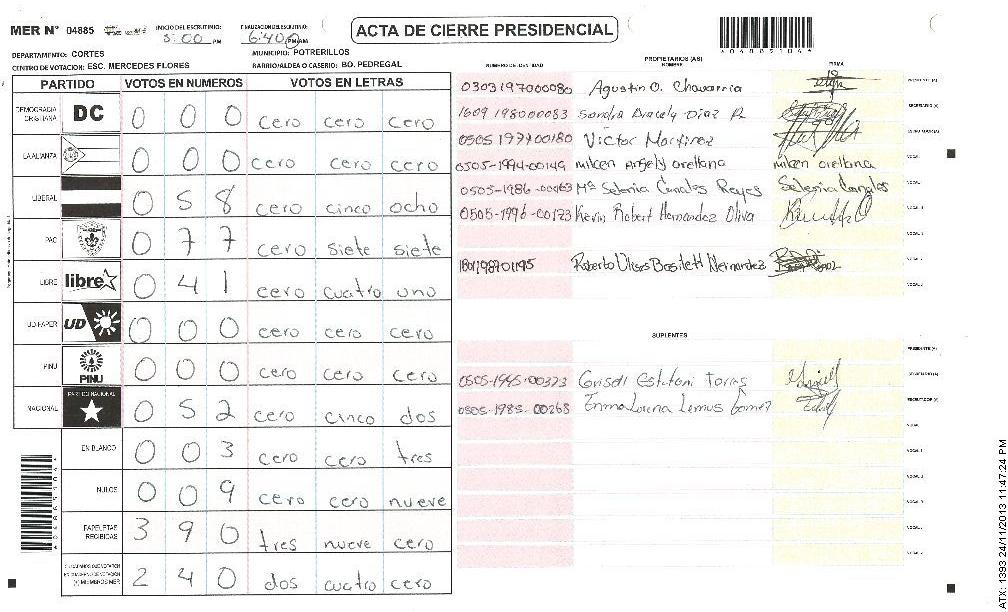 MER Nº 04885 INICIO DEL ESCRUTINIO: 5:00 PM FINALIZACION ESCRUTINIO: 6:40 PM/AM ACTA DE CIERRE PRESIDENCIAL
DEPARTAMENTO: CORTES MUNICIPIO: POTRERILLOS
CENTRO DE VOTACION: ESC. MERCEDES FLORES BARRIO/ALDEA O CASERIO: BO. PEDREGAL
PARTIDO VOTOS EN NUMEROS VOTOS EN LETRAS
DEMOCRACIA CRISTIANA DC 0 0 0 cero cero cero
LA ALIANZA 0 0 0 cero cero cero
LIBERAL 0 5 8 cero cinco ocho
PAC 0 7 7 cero siete siete
LIBRE libre 0 4 1 cero cuatro uno
UD-FAPER UD 0 0 0 cero cero cero
PINU PINU 0 0 0 cero cero cero
NACIONAL PARTIDO NACIONAL 0 5 2 cero cinco dos
EN BLANCO 0 0 3 cero cero tres
NULOS 0 0 9 cero cero nueve
PAPELETAS RECIBIDAS 3 9 0 tres nueve cero
2 4 0 dos cuatro cero
PROPIETARIOS (AS)
NUMERO DE IDENTIDAD NOMBRE FIRMA
0303197000080 Agustin O. Chavarria PRESIDENTE (A)
1609 198000083 Sandra Aracely Diaz R SECRETARIO (A)
0505 199700180 Victor Martinez ESCRUTADOR (A)
0505-1994-00149 milcen Anjely orellana milcen orellana VOCAL
0505-1986-00063 Mª Selenia Canales Reyes Selenia Canales VOCAL
0505-1996-00123 Kevin Robert Hernandez Oliva VOCAL
1801198701195 Roberto Ulises Hernandez VOCAL
SUPLENTES
PRESIDENTE (A)
0505-1995-00323 Grisell Estefani Torres SECRETARIO (A)
0505-1985-00268 Enma Lorena Lemus Gomez ESCRUTADOR (A)
VOCAL
VOCAL
VOCAL
VOCAL
VOCAL
VOCAL
ATX: 1393 24/11/2013 11:47:24 PM